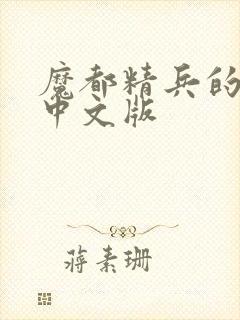 魔都精兵的
中文版
蒋素珊